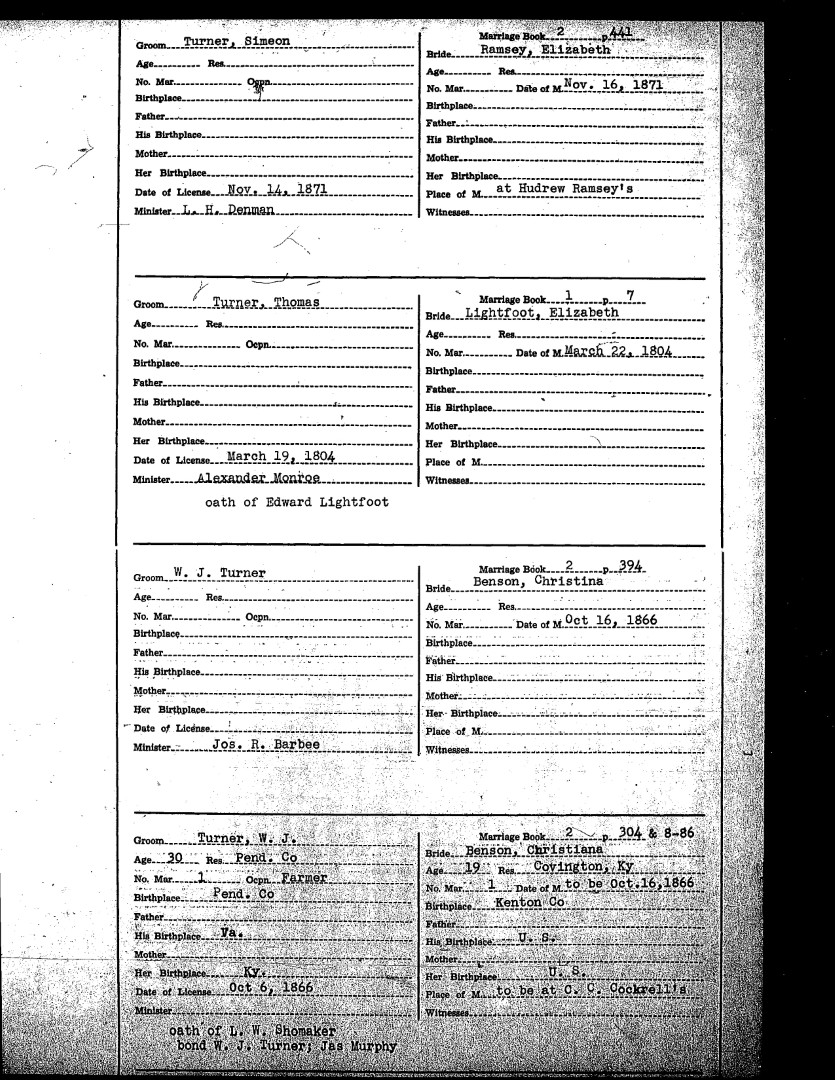 Groom Turner, Simeon
Age Res.
No. Mar. Ocpn.
Birthplace
Father
His Birthplace
Mother
Her Birthplace
Date of License Nov. 14, 1871
Minister L. H. Denman
Marriage Book 2 p. 441
Bride Ramsey, Elizabeth
Age Res.
No. Mar. Date of M. Nov. 16, 1871
Birthplace
Father
His Birthplace
Mother
Her Birthplace
Place of M. at Hudrew Ramsey's
Witnesses
Groom Turner, Thomas
Age Res.
No. Mar. Ocpn.
Birthplace
Father
His Birthplace
Mother
Her Birthplace
Date of License March 19, 1804
Minister Alexander Monroe
oath of Edward Lightfoot
Marriage Book 1 p. 7
Bride Lightfoot, Elizabeth
Age Res.
No. Mar. Date of M. March 22, 1804
Birthplace
Father
His Birthplace
Mother
Her Birthplace
Place of M.
Witnesses
Groom W. J. Turner
Age Res.
No. Mar. Ocpn.
Birthplace
Father
His Birthplace
Mother
Her Birthplace
Date of License
Minister Jos. R. Barbee
Marriage Book 2 p. 394
Bride Benson, Christina
Age Res.
No. Mar. Date of M. Oct 16, 1866
Birthplace
Father
His Birthplace
Mother
Her Birthplace
Place of M.
Witnesses
Groom Turner, W. J.
Age 30 Res. Pend. Co
No. Mar. 1 Ocpn. Farmer
Birthplace Pend. Co
Father
His Birthplace Va.
Mother
Her Birthplace Ky.
Date of License Oct 6, 1866
Minister
oath of L. W. Shomaker
bond W. J. Turner; Jas Murphy
Marriage Book 2 p. 304 & 8-86
Bride Benson, Christiana
Age 19 Res. Covington, Ky
No. Mar. 1 Date of M. to be Oct.16,1866
Birthplace Kenton Co
Father
His Birthplace U. S.
Mother
Her Birthplace U. S.
Place of M. to be at C. C. Cockrell's
Witnesses